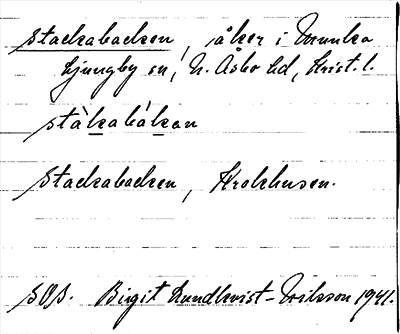 Stackabacken, åker i Munka
Ljungby sn, N. Åsbo hd, Krist. l.
stàkabákan
Stackabacken, Krokhusen.
SOB. Birgit Lundkvist-Nilsson 1941.